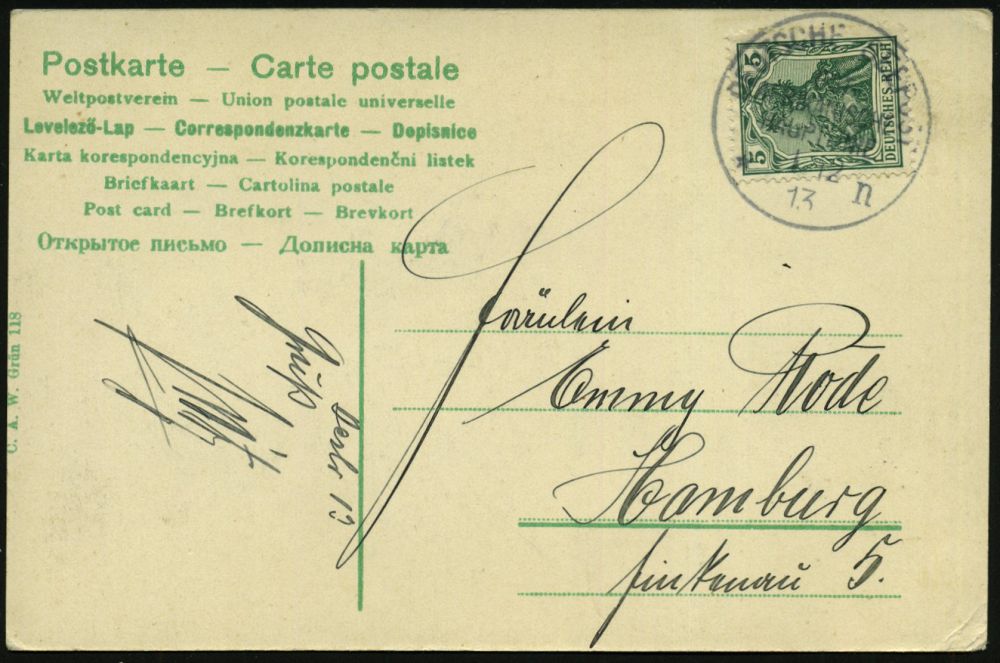 Postkarte — Carte postale
Weltpostverein — Union postale universelle
Levelező-Lap — Correspondenzkarte — Dopisnice
Karta korespondencyjna — Korespondenčni listek
Briefkaart — Cartolina postale
Post card — Brefkort — Brevkort
Открытое письмо — Дописна карта
5
5
DEUTSCHES REICH
DEUTSCHE SEEPOST
12
13 n
Fräulein
Emmy Rode
Hamburg
Finkenau 5.
Gruß
13
C. A. W. Grün 118